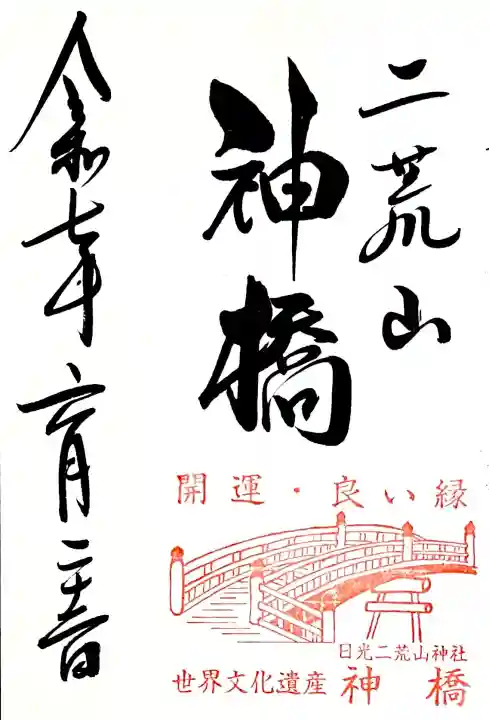 二荒山
神橋
令和七年六月
開運・良い縁
日光二荒山神社
世界文化遺産 神橋